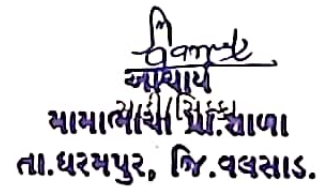 આચાર્ય
સહી/સિક્કા
મામાભાચા પ્રા.શાળા
તા.ધરમપુર, જિ.વલસાડ.